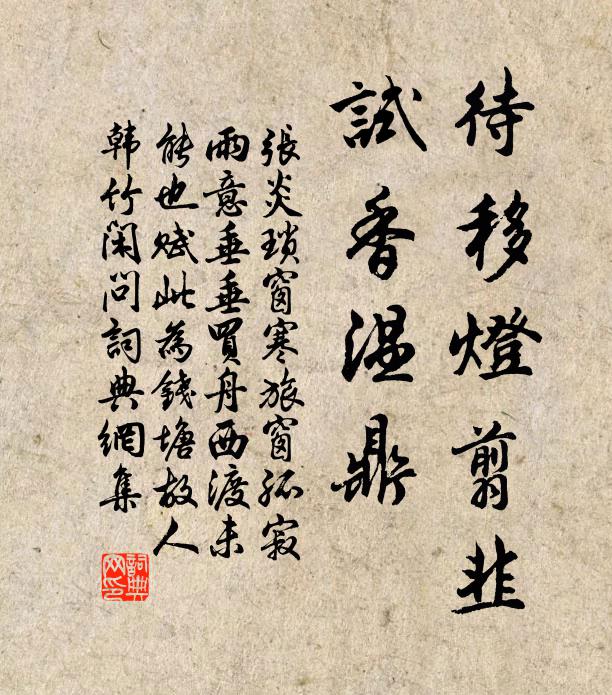 待移燈剪韭
試香温鼎
張炎瑣窗寒旅窗孤寂
雨意垂垂買舟西渡未
能也赋此為錢塘故人
韩竹閑問詞典網集
詞典网印